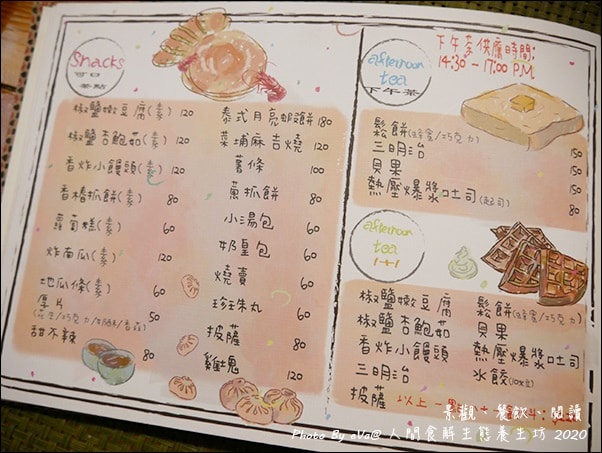 Snacks
可口
茶點
椒鹽嫩豆腐(素) 120
椒鹽杏鮑菇(素) 120
香炸小饅頭(素) 120
香椿抓餅(素) 80
蘿蔔糕(素) 60
炸南瓜(素) 120
地瓜條(素) 60
厚片 50
甜不辣 80
泰式月亮蝦餅 180
菜埔麻吉燒 120
薯條 100
蔥抓餅 80
小湯包 60
奶皇包 60
燒賣 60
珍珠丸 60
披薩 80
雞塊 120
afternoon
tea
下午茶
下午茶供應時間:
14:30 - 17:00 P.M.
鬆餅(蜂蜜/巧克力) 150
三明治 150
貝果 150
熱壓爆漿吐司(起司) 80
afternoon
tea
1+1
椒鹽嫩豆腐
椒鹽杏鮑菇
香炸小饅頭
三明治
披薩
鬆餅(蜂蜜/巧克力)
貝果
熱壓爆漿吐司
水餃(10粒)
以上一
景觀。餐飲。閱讀
Photo By eVa@ 人間食解生態養生坊 2020